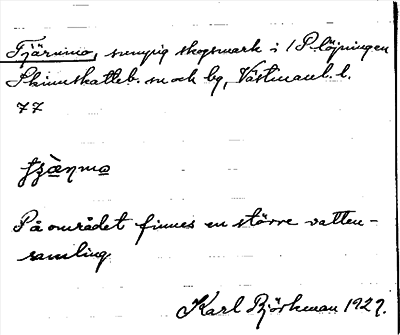 Tjärnmo, sumpig skogsmark i / Plöjningen
Skinnskatteb. sn och bg, Västmanl. l.
77
På området finnes en större vatten-
samling.
Karl Björkman 1927.